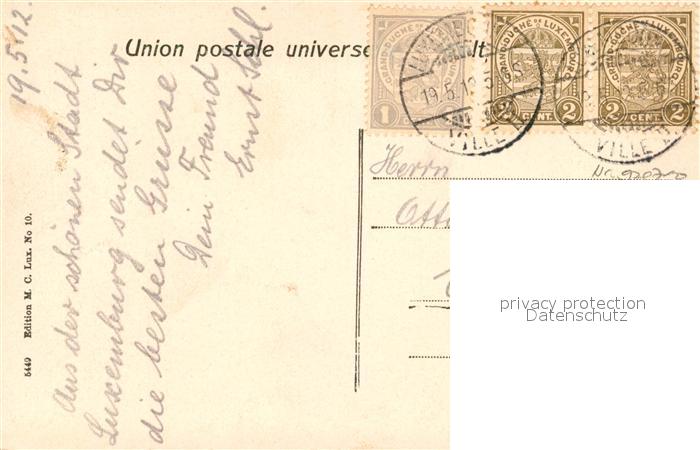 19.5.12.
Aus der schönen Stadt
Luxemburg sendet Dir
die besten Grüsse
Dein Freund
Ernst
Union postale universe
5449 Edition M. C. Lux. No 10.
GRAND-DUCHÉ DE LUXEMBOURG
1 CENT. 1
GRAND-DUCHÉ DE LUXEMBOURG
2 CENT. 2
GRAND-DUCHÉ DE LUXEMBOURG
2 CENT. 2
19.5.12
VILLE
VILLE
Herrn
Otto
privacy protection
Datenschutz